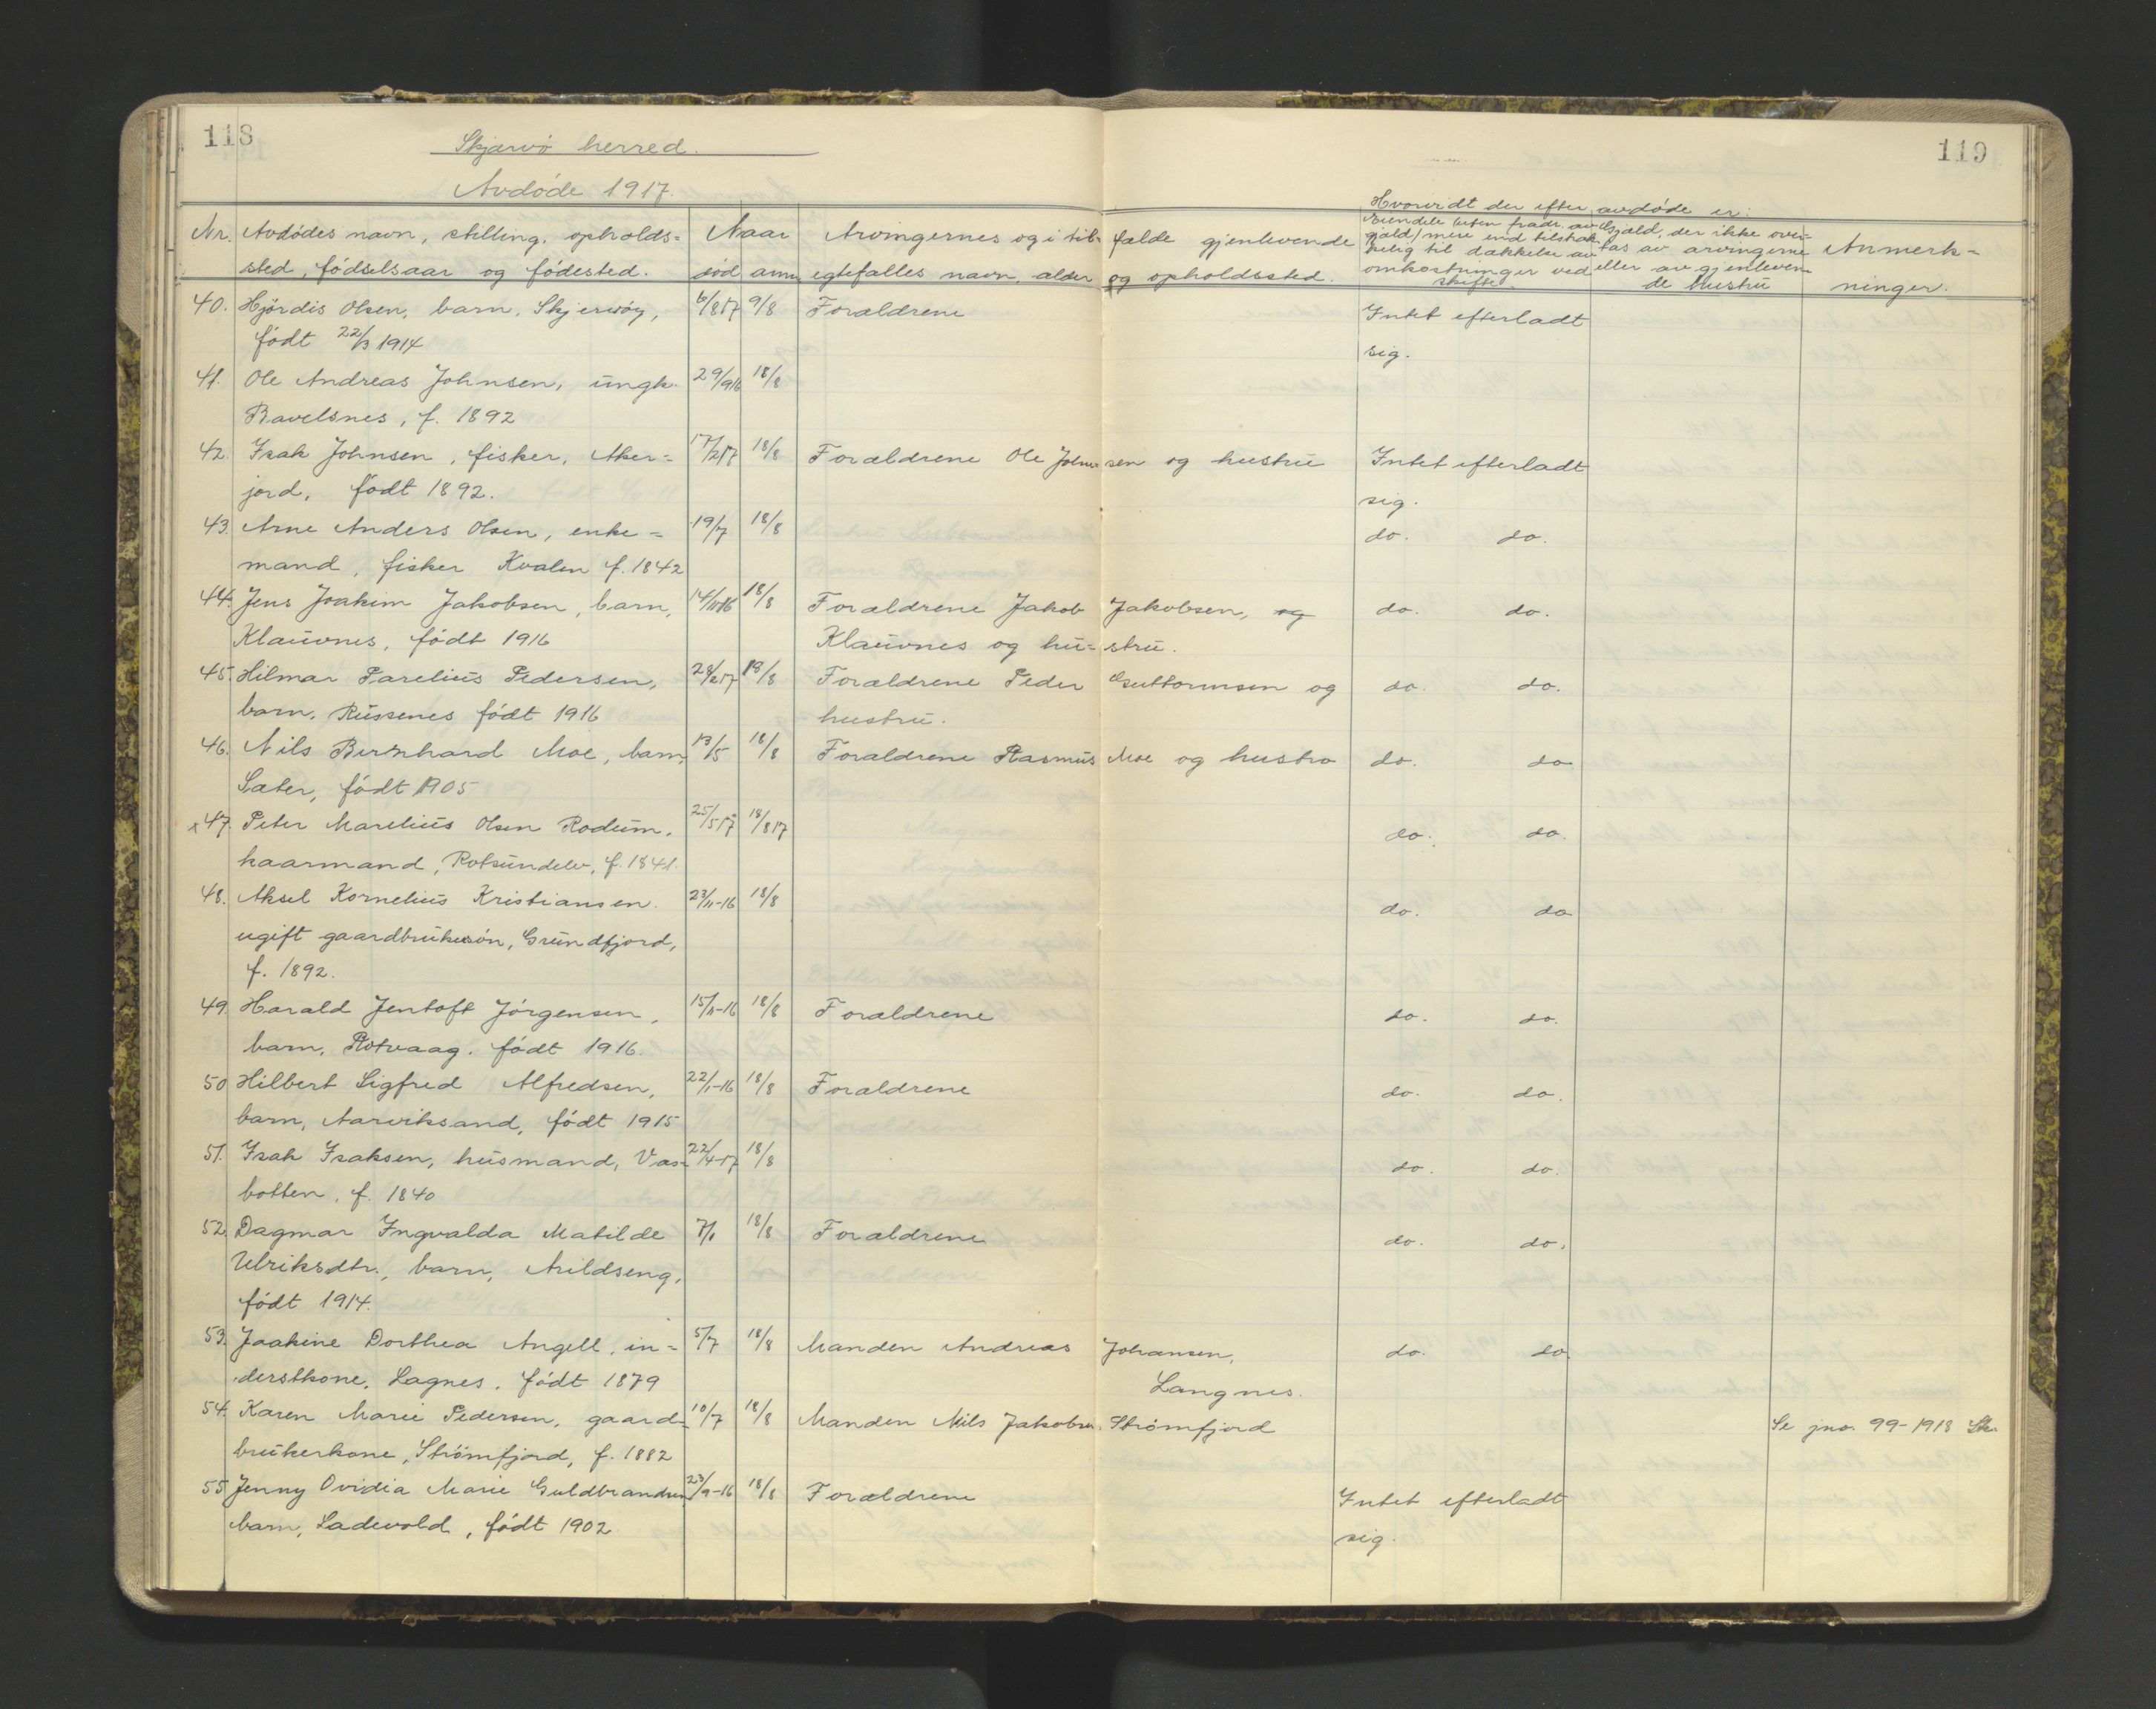 118
119
Skjærvö herred.
Avdöde 1917.
Hvorvidt der efter avdöde er:
Nr. Avdödes navn, stilling, opholds= sted, födselsaar og födested.
Naar död anm
Arvingernes og i til= fælde gjenlevende egtefælles navn, alder og opholdssted.
Eiendele uten fradr. av gjæld/mere end tilstræk kelig til dækkelse av omkostninger ved skifte.
Gjæld, der ikke over= tas av arvingerne eller av gjenleven de hustru
Anmerk= ninger.
40. Hjördis Olsen, barn, Skjervöy, 6/8 17 9/8 Forældrene Intet efterladt
födt 22/3 1914 sig.
41. Ole Andreas Johnsen, ungk. 29/9 16 18/8
Ravelsnes, f. 1892
42. Isak Johnsen, fisker, Aker= 17/2 17 18/8 Forældrene Ole Johnsen og hustru Intet efterladt
jord, födt 1892. sig.
43. Arne Anders Olsen, enke= 19/7 18/8 do. do.
mand, fisker Kvalen f. 1842
44. Jens Joakim Jakobsen, barn, 14/11 16 18/8 Forældrene Jakob Jakobsen, og do. do.
Klauvnes, födt 1916 Klauvnes og hu= stru.
45. Hilmar Parelius Pedersen, 28/2 17 18/8 Forældrene Peder Guttormsen og do. do.
barn, Russenes födt 1916 hustru.
46. Nils Bernhard Moe, barn, 13/5 18/8 Forældrene Rasmus Moe og hustro do. do
Sæter, födt 1905
x 47. Peter Marelius Olsen Rodum, 25/5 17 18/8 17 do. do.
kaarmand, Rotsundelv, f. 1841.
48. Aksel Kornelius Kristiansen. 23/11-16 18/8 do. do
ugift gaardbrukersön, Grundfjord,
f. 1892.
49. Harald Jentoft Jörgensen, 15/11-16 18/8 Forældrene do. do.
barn, Rotvaag. födt 1916.
50 Hilbert Sigfred Alfredsen, 22/1-16 18/8 Forældrene do. do.
barn, Aarviksand, födt 1915
51. Isak Isaksen, husmand, Vas= 22/4-17 18/8 do. do.
botten, f. 1840
52. Dagmar Ingvalda Matilde 7/1 18/8 Forældrene do. do.
Ulriksdtr., barn, Mildseng,
födt 1914.
53. Joakine Dorthea Angell, in= 5/7 18/8 Manden Andreas Johansen, do. do.
derstkone, Lagnes, födt 1879 Langnes.
54. Karen Marie Pedersen, gaard= 10/7 18/8 Manden Nils Jakobsen. Strömfjord Se jno. 99-1918 Sk.
brukerkone, Strömfjord, f. 1882
55 Jenny Ovidia Marie Guldbrandsen 23/9-16 18/8 Forældrene Intet efterladt
barn, Ladevold, födt 1902 sig.